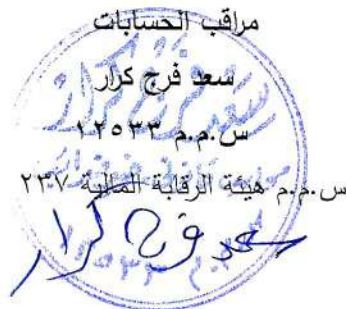 مراقب الحسابات
سعد فرج كرار
س.م.م ١٢٥٣٣
س.م.م هيئة الرقابة المالية ٢٣٧
سعد فرج كرار